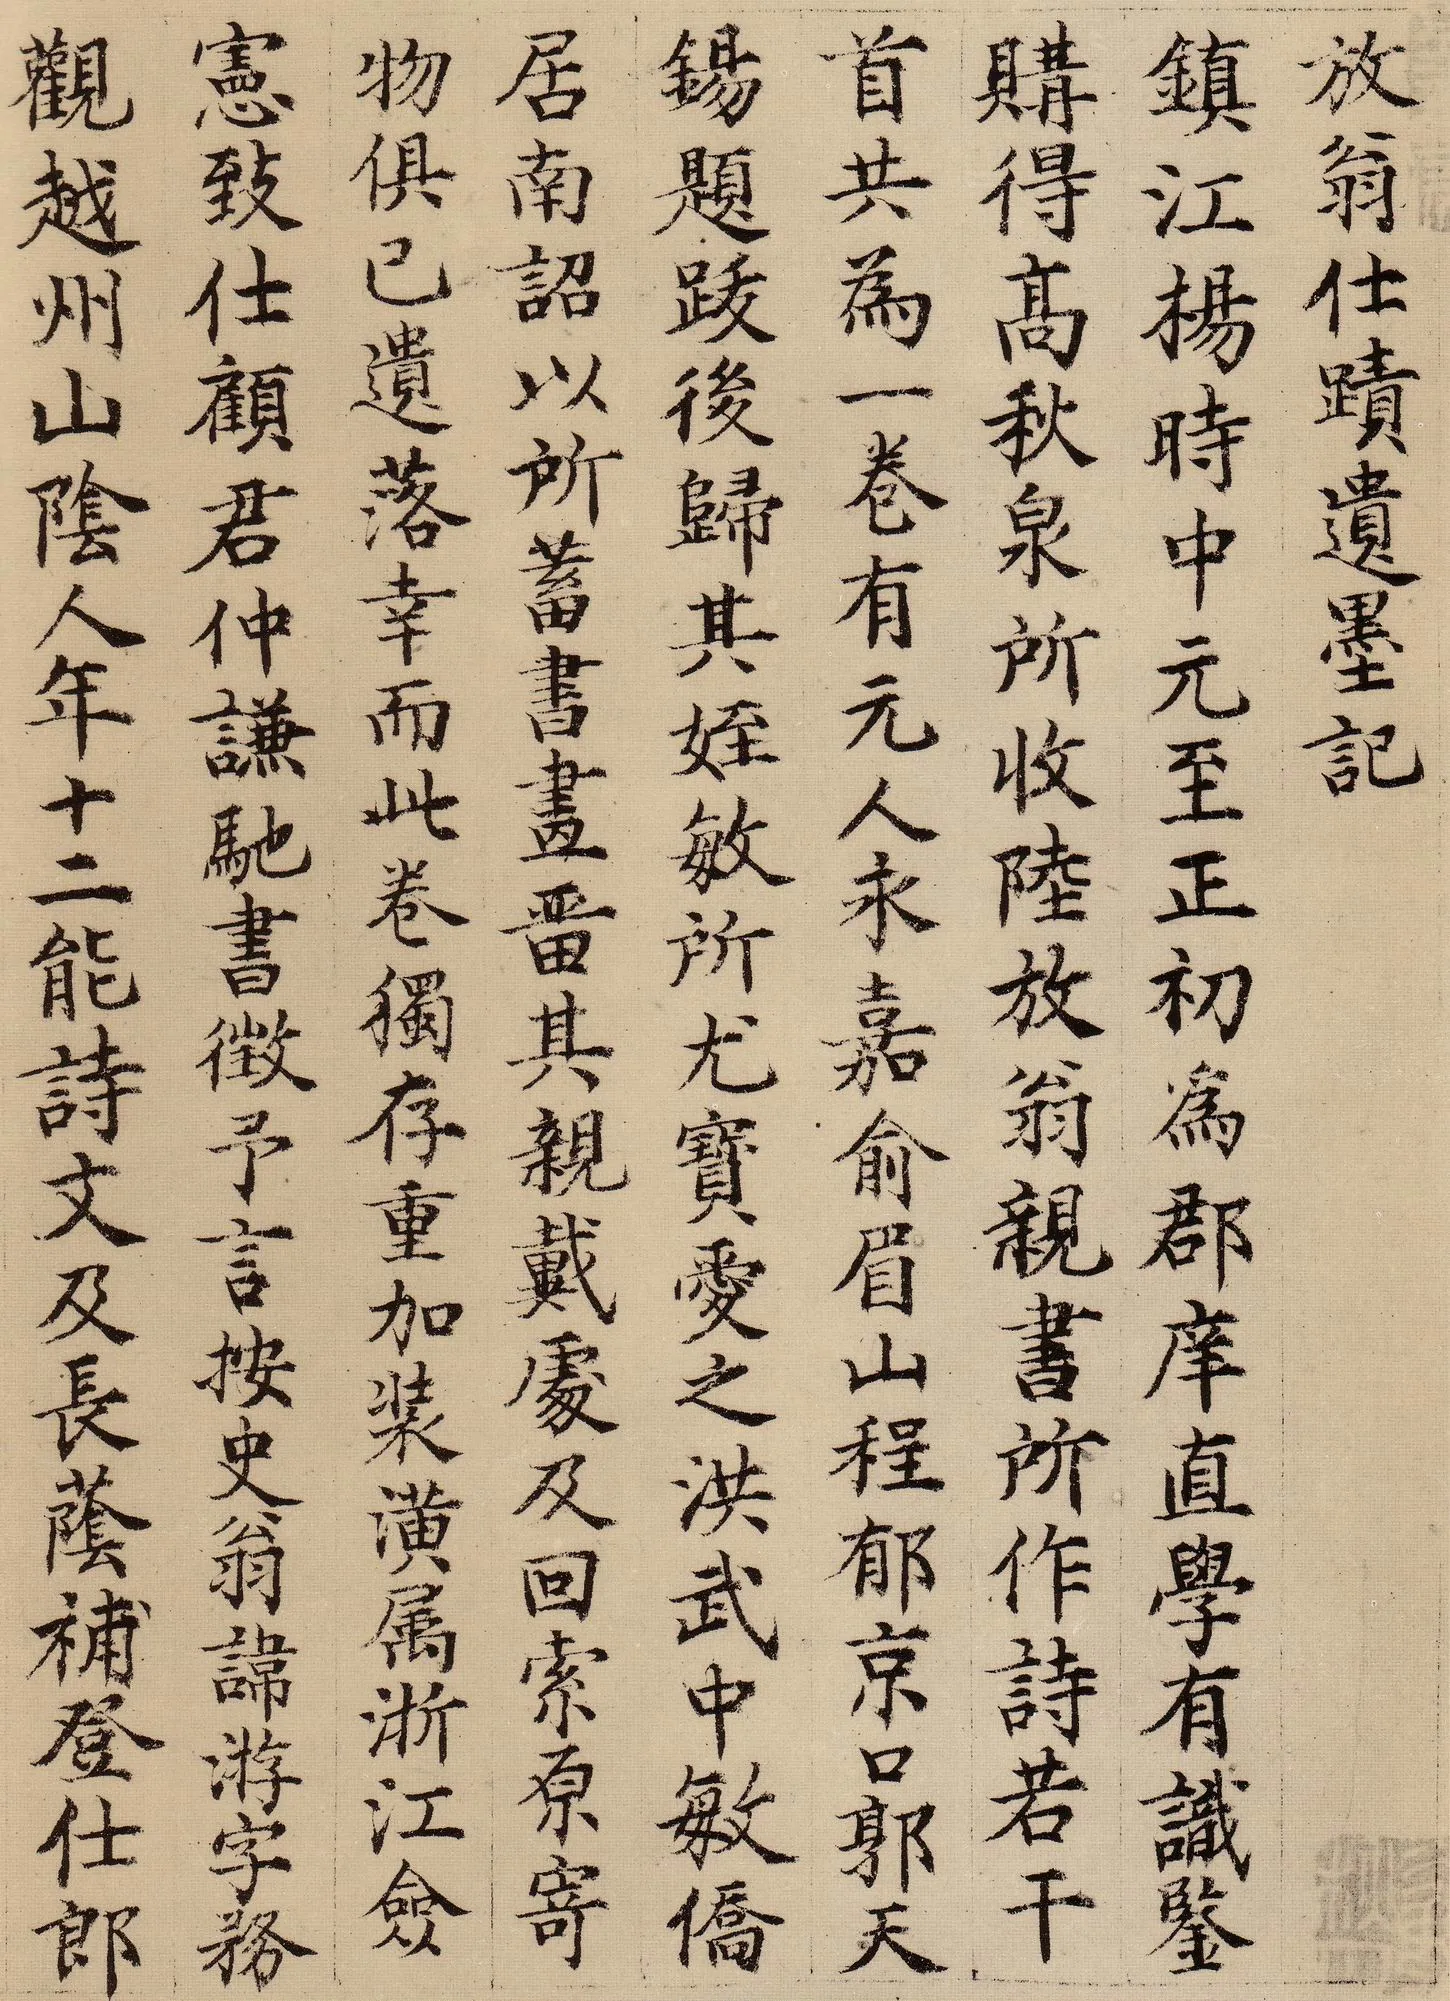 放翁仕蹟遺墨記
鎮江楊時中元至正初為郡庠直學有識鑒
購得髙秋泉所收陸放翁親書所作詩若干
首共為一卷有元人永嘉俞眉山程郁京口郭天
錫題跋後歸其姪敏所尤寶愛之洪武中敏僑
居南詔以所蓄書畫畱其親戴處及回索原寄
物俱已遺落幸而此卷獨存重加装潢属浙江僉
憲致仕顧君仲謙馳書徴予言按史翁諱游字務
觀越州山陰人年十二能詩文及長蔭補登仕郎